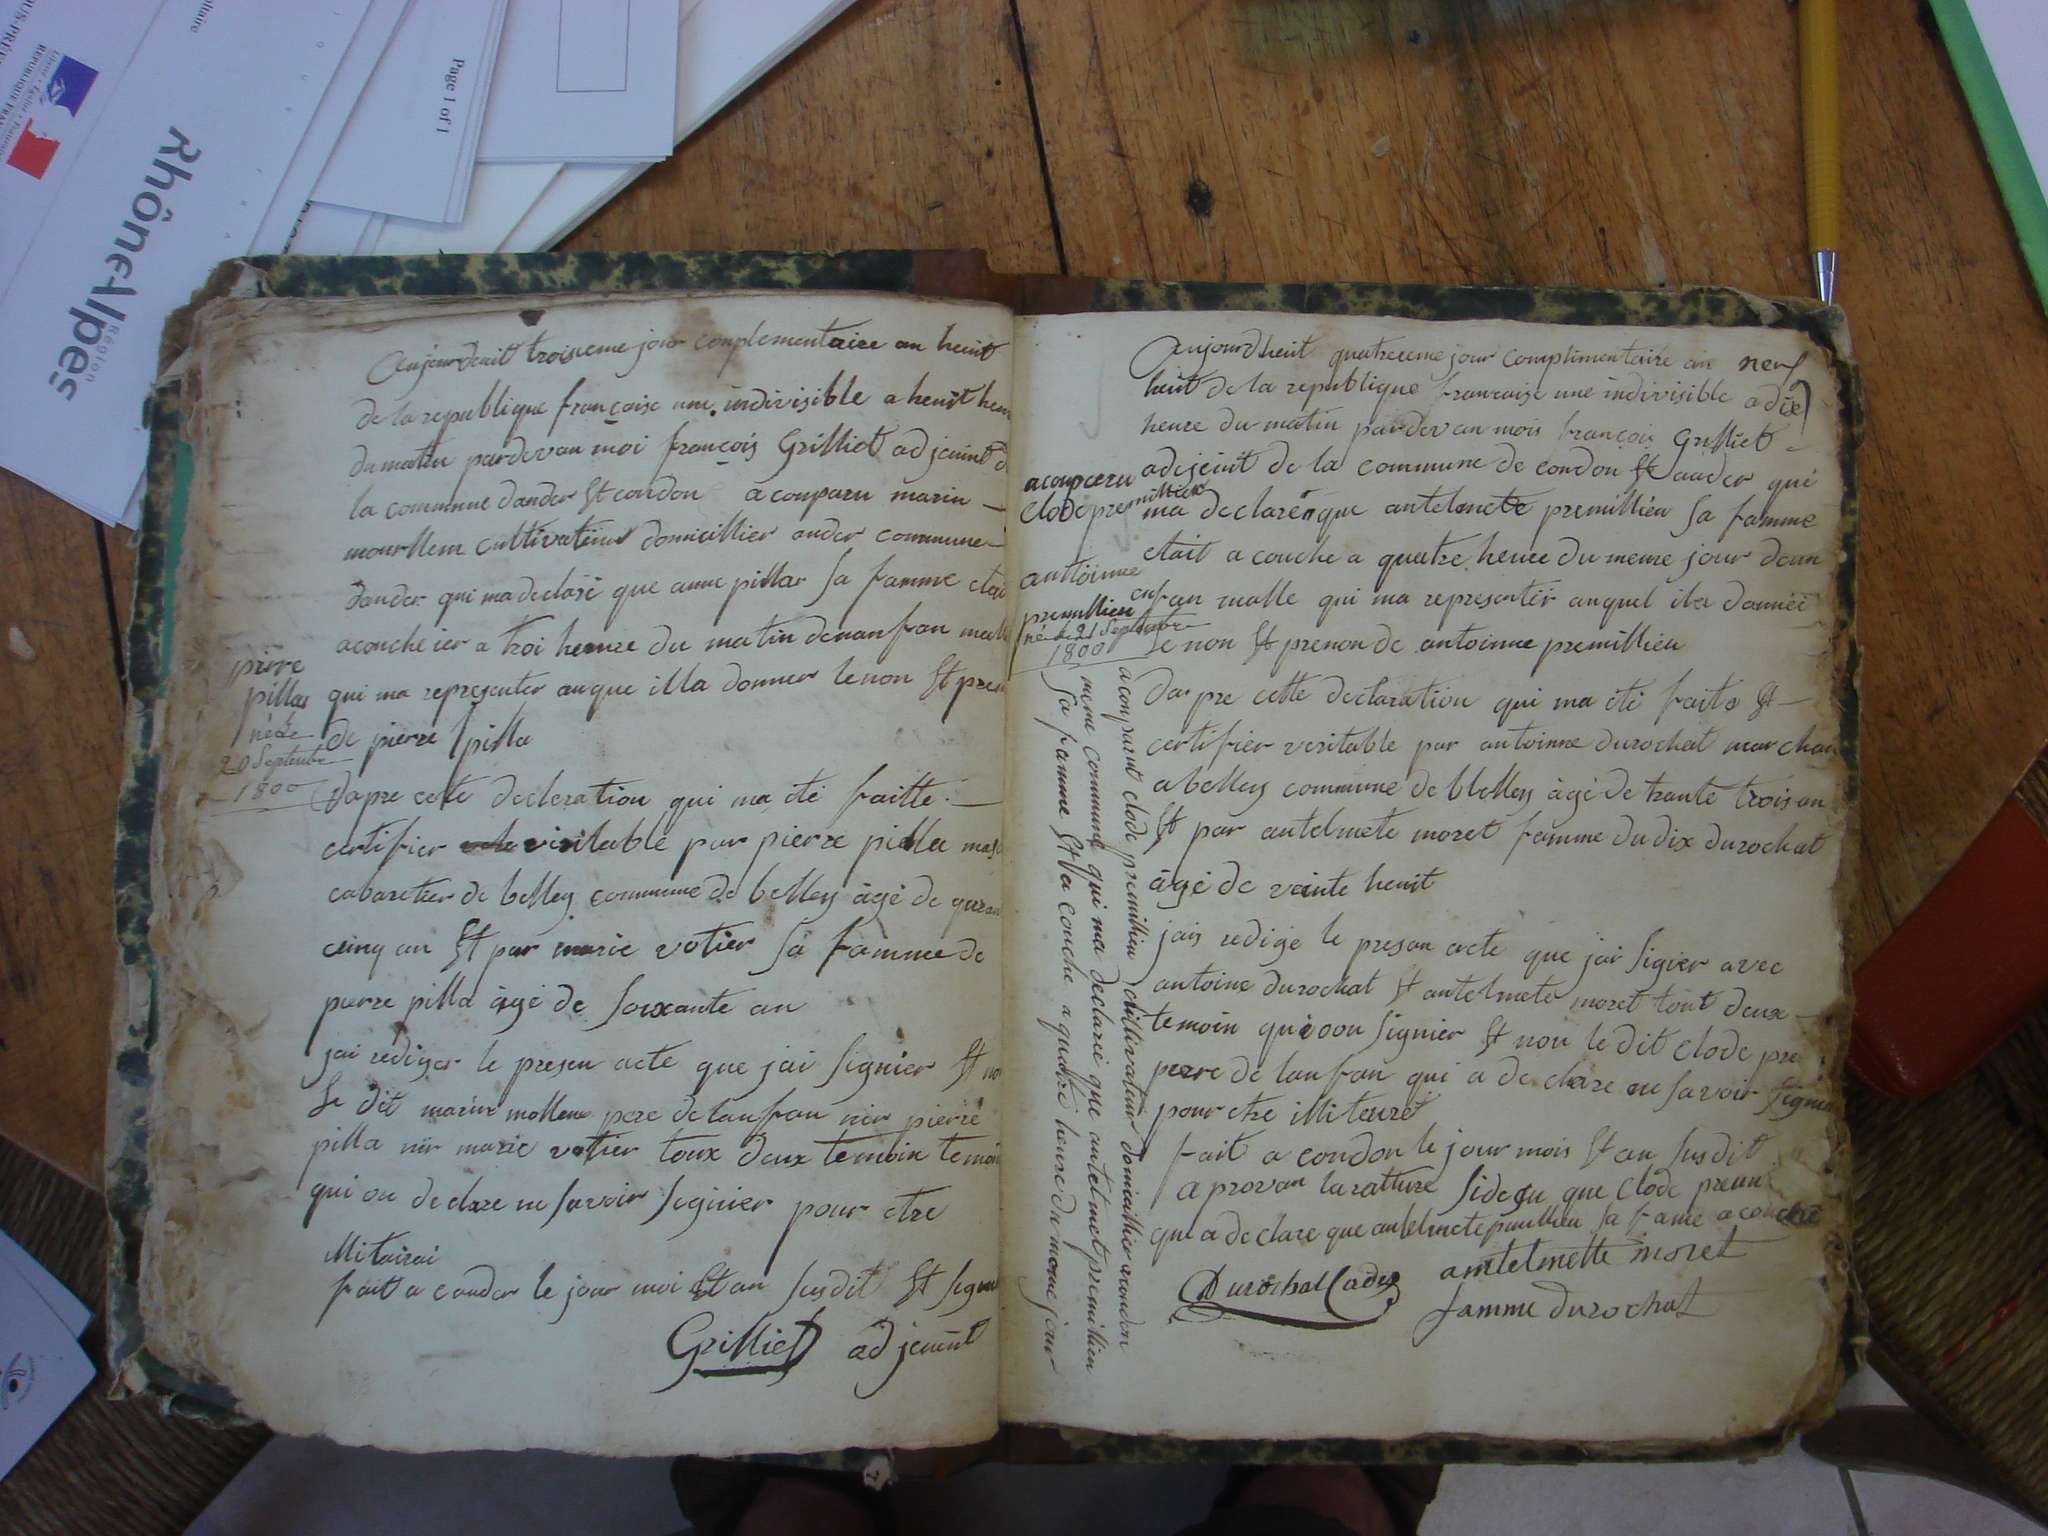 Rhône-Alpes
Région
Page 1 of 1
Liberté • Égalité • Fraternité
aujourdeuit troisieme jour complementaire an heuit
de la republique françoise une indivisible a heuit heu
du matin pardevan moi françois Grilliet adjeuint d
la commune dander Et condon a couparu marin
mourllem cultivatiur domicillier ander commune
dander qui ma declaré que anne pillar sa famme etai
acouche ier a troi heure du matin dun anfan mall
qui ma representer auque illa donner le non Et pren
de pierre pilla
pirre
pillas
né le
20 Septembre
1800
dapre cete decleration qui ma été faitte
certifier visitable par pierre pilla
cabaretier de belley commune de belley àgé de quran
cinq an Et par marie votier sa famme de
pierre pilla àgé de soixante an
jai rediger le presen acte que jai signier Et no
le dit marin mollem pere de lanfan nir pierre
pilla nir marie votier toux deux temoin temoin
qui on declare ne savoir signier pour etre
illitairai
fait a condon le jour moi Et an susdit Et signe
Grilliet adjeuint
aujourdheuit quatrieme jour complimentaire an neuf
heuit de la republique francaise une indivisible a dix
heure du matin pardevan mois françois Grilliet
adejeuit de la commune de condon Et ander qui
acouparu
clode premillieu
ma declaré que antelmete premillieu sa famme
etait a couche a quatre heure du meme jour dun
enfan malle qui ma representér auquel ila donnéé
le non Et prenon de antoinne premillieu
antoinne
premillieu
né le 21 Septembre
1800
dapre cette declaration qui ma été faite Et
certifier veritable par antoinne durochat marchan
a belley commune de blelley àgé de trante trois an
Et par antelmete moret famme du dix durochat
àgé de vainte heuit
jais redige le presan acte que jai signier avec
antoine durochat Et antelmete moret tout deux
temoin qui oon signier Et non le dit clode pre
perre de lanfan qui a declare ne savoir signier
pour etre illiteuret
fait a condon le jour mois Et an susdit
a provan larature sidesu que clode premi
qui a declare que antelmete pmillieu sa fame a couché
Durochat Cadet
antelmette moret
famme durochat
a comparut clode premillieu cultivateur domicillier a condon
meme commune qui ma declarié que antelmet premillieu
sa famme Et a couché a quatre heure du meme jour